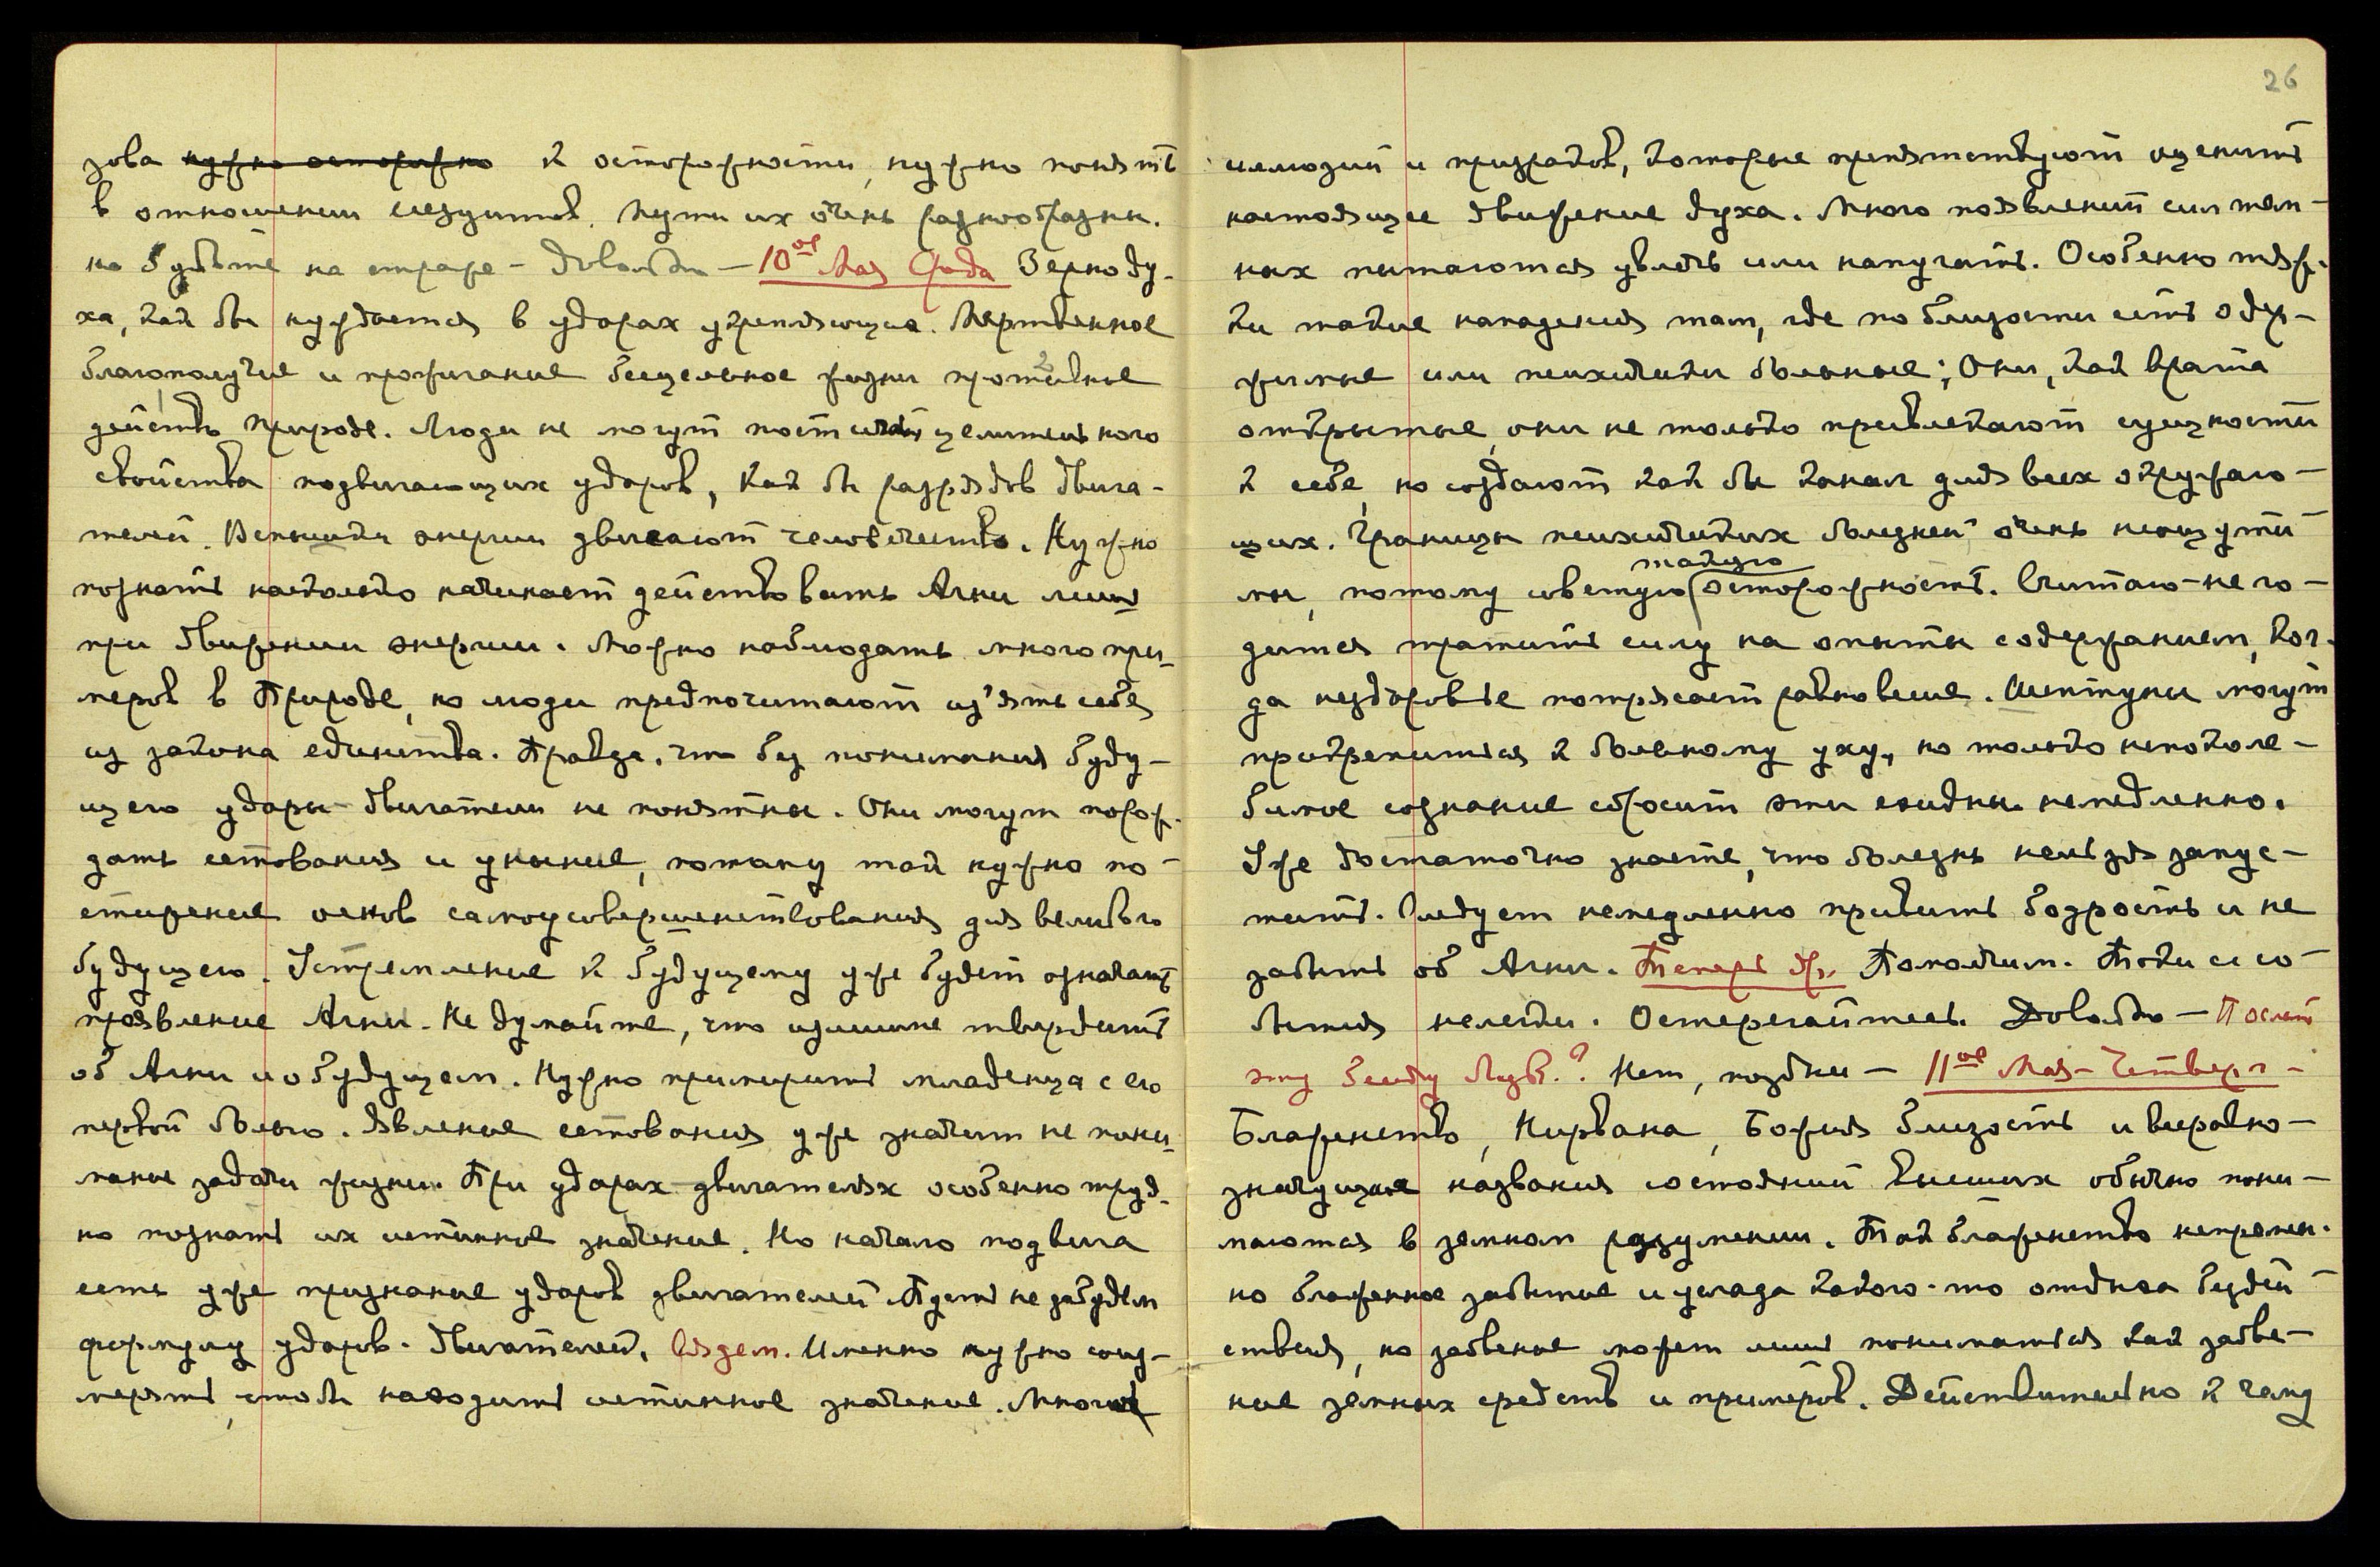 зова нужно осторожно к осторожности, нужно понять
в отношении иезуитов. Пути их очень разнообразны.
но будьте на страже – Довольно – 10ое Мая Среда Зерно ду-
ха, как бы нуждается в ударах укрепляющих. Мертвенное
благополучие и прожигание бесцельное жизни противное
действо Природе. Люди не могут постичь целительного
свойства подвигающих ударов, как бы разрядов двига-
телей. Вспышки энергии двигают человечество. Нужно
познать насколько начинает действовать Агни лишь
при движении энергии. Можно наблюдать много при-
меров в Природе, но люди предпочитают из'ять себя
из закона единства. Правда, что без понимания буду-
щего удары-двигатели не понятны. Они могут порож-
дать сетования и уныние, потому так нужно по-
стижение основ самоусовершенствования для великого
будущего. Устремление к будущему уже будет означать
проявление Агни. Не думайте, что излишне твердить
об Агни и о будущем. Нужно примирить младенца с его
первой болью. Явление сетования уже значит не пони-
мание задачи жизни. При ударах двигателях особенно труд-
но познать их истинное значение. Но начало подвига
есть уже признание ударов двигателей. Пусть не забудем
формулу ударов-двигателей. Сядем. Именно нужно соиз-
мерять, чтобы находить истинное значение. Много
26
иллюзий и призраков, которые препятствуют оценить
настоящее движение духа. Много появлений сил тем-
ных пытаются увлечь или напугать. Особенно тяж-
ки такие нападения там, где по близости есть одер-
жимые или психически больные; Они, как врата
открытые, они не только привлекают сущности
к себе, но создают как бы канал для всех окружаю-
щих. Границы психических болезней очень неощути-
мы, потому советую такую осторожность. Считаю – не го-
дится тратить силу на опыты содержанием, ког-
да нездоровье потрясает равновесие. Шептуны могут
прикрепиться к больному уху, но только непоколе-
бимое сознание сбросит эти ехидны немедленно.
Уже достаточно знаете, что болезнь нельзя запус-
тить. Следует немедленно привить бодрость и не
забыть об Агни. Теперь др. Помолчим. Токи и со-
бытия нелегки. Остерегайтесь. Довольно – Послать
эту Нет, поздни – 11ое Мая – Четверг –
Блаженство, Нирвана, Божия близость и все равно-
значущие названия состояний Высших обычно пони-
маются в земном разумении. Так блаженство непремен-
но блаженное забытие и услада какого-то отдыха бездей-
ствия, но забвение может лишь пониматься как забве-
ние земных средств и примеров. Действительно к чему